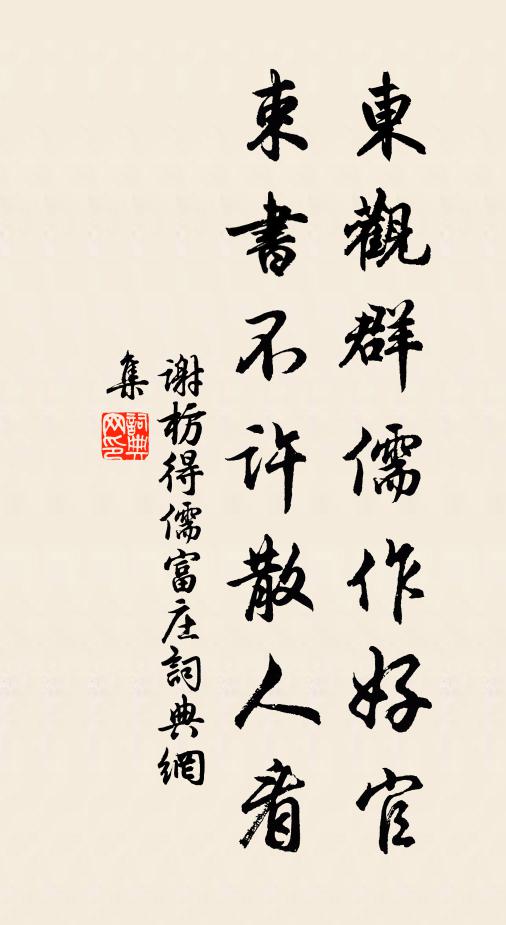 東觀群儒作好官
束書不許散人看
謝枋得儒富庄詞典網
集
詞典网印